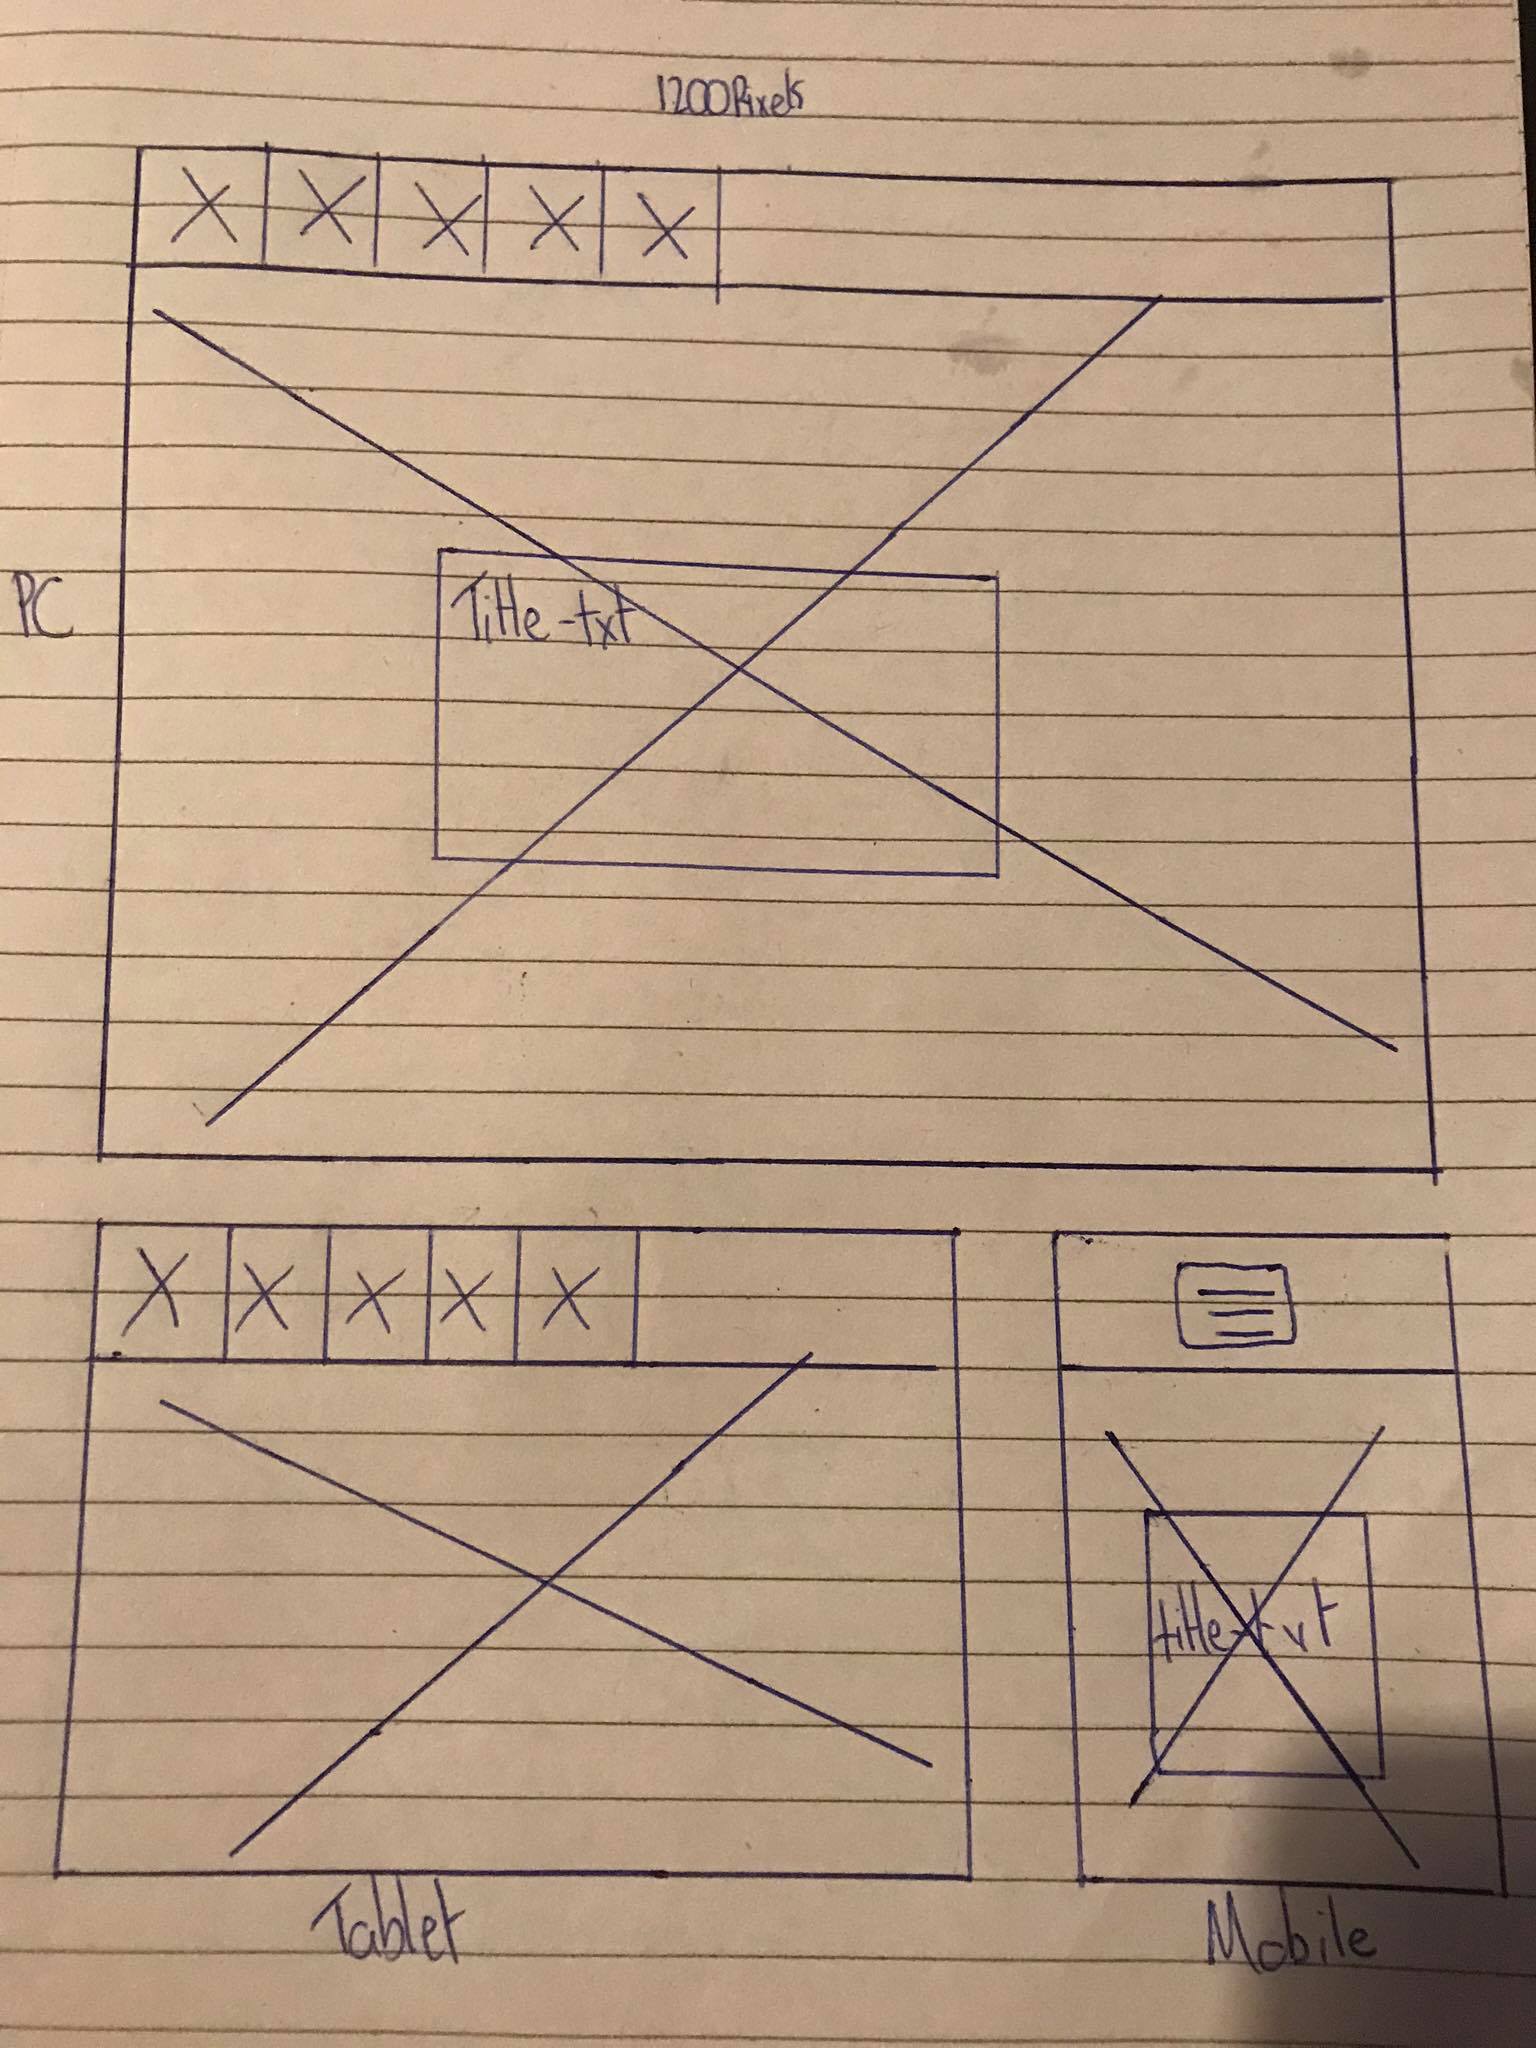 1200Pixels
PC
Title-txt
title-txt
Tablet
Mobile